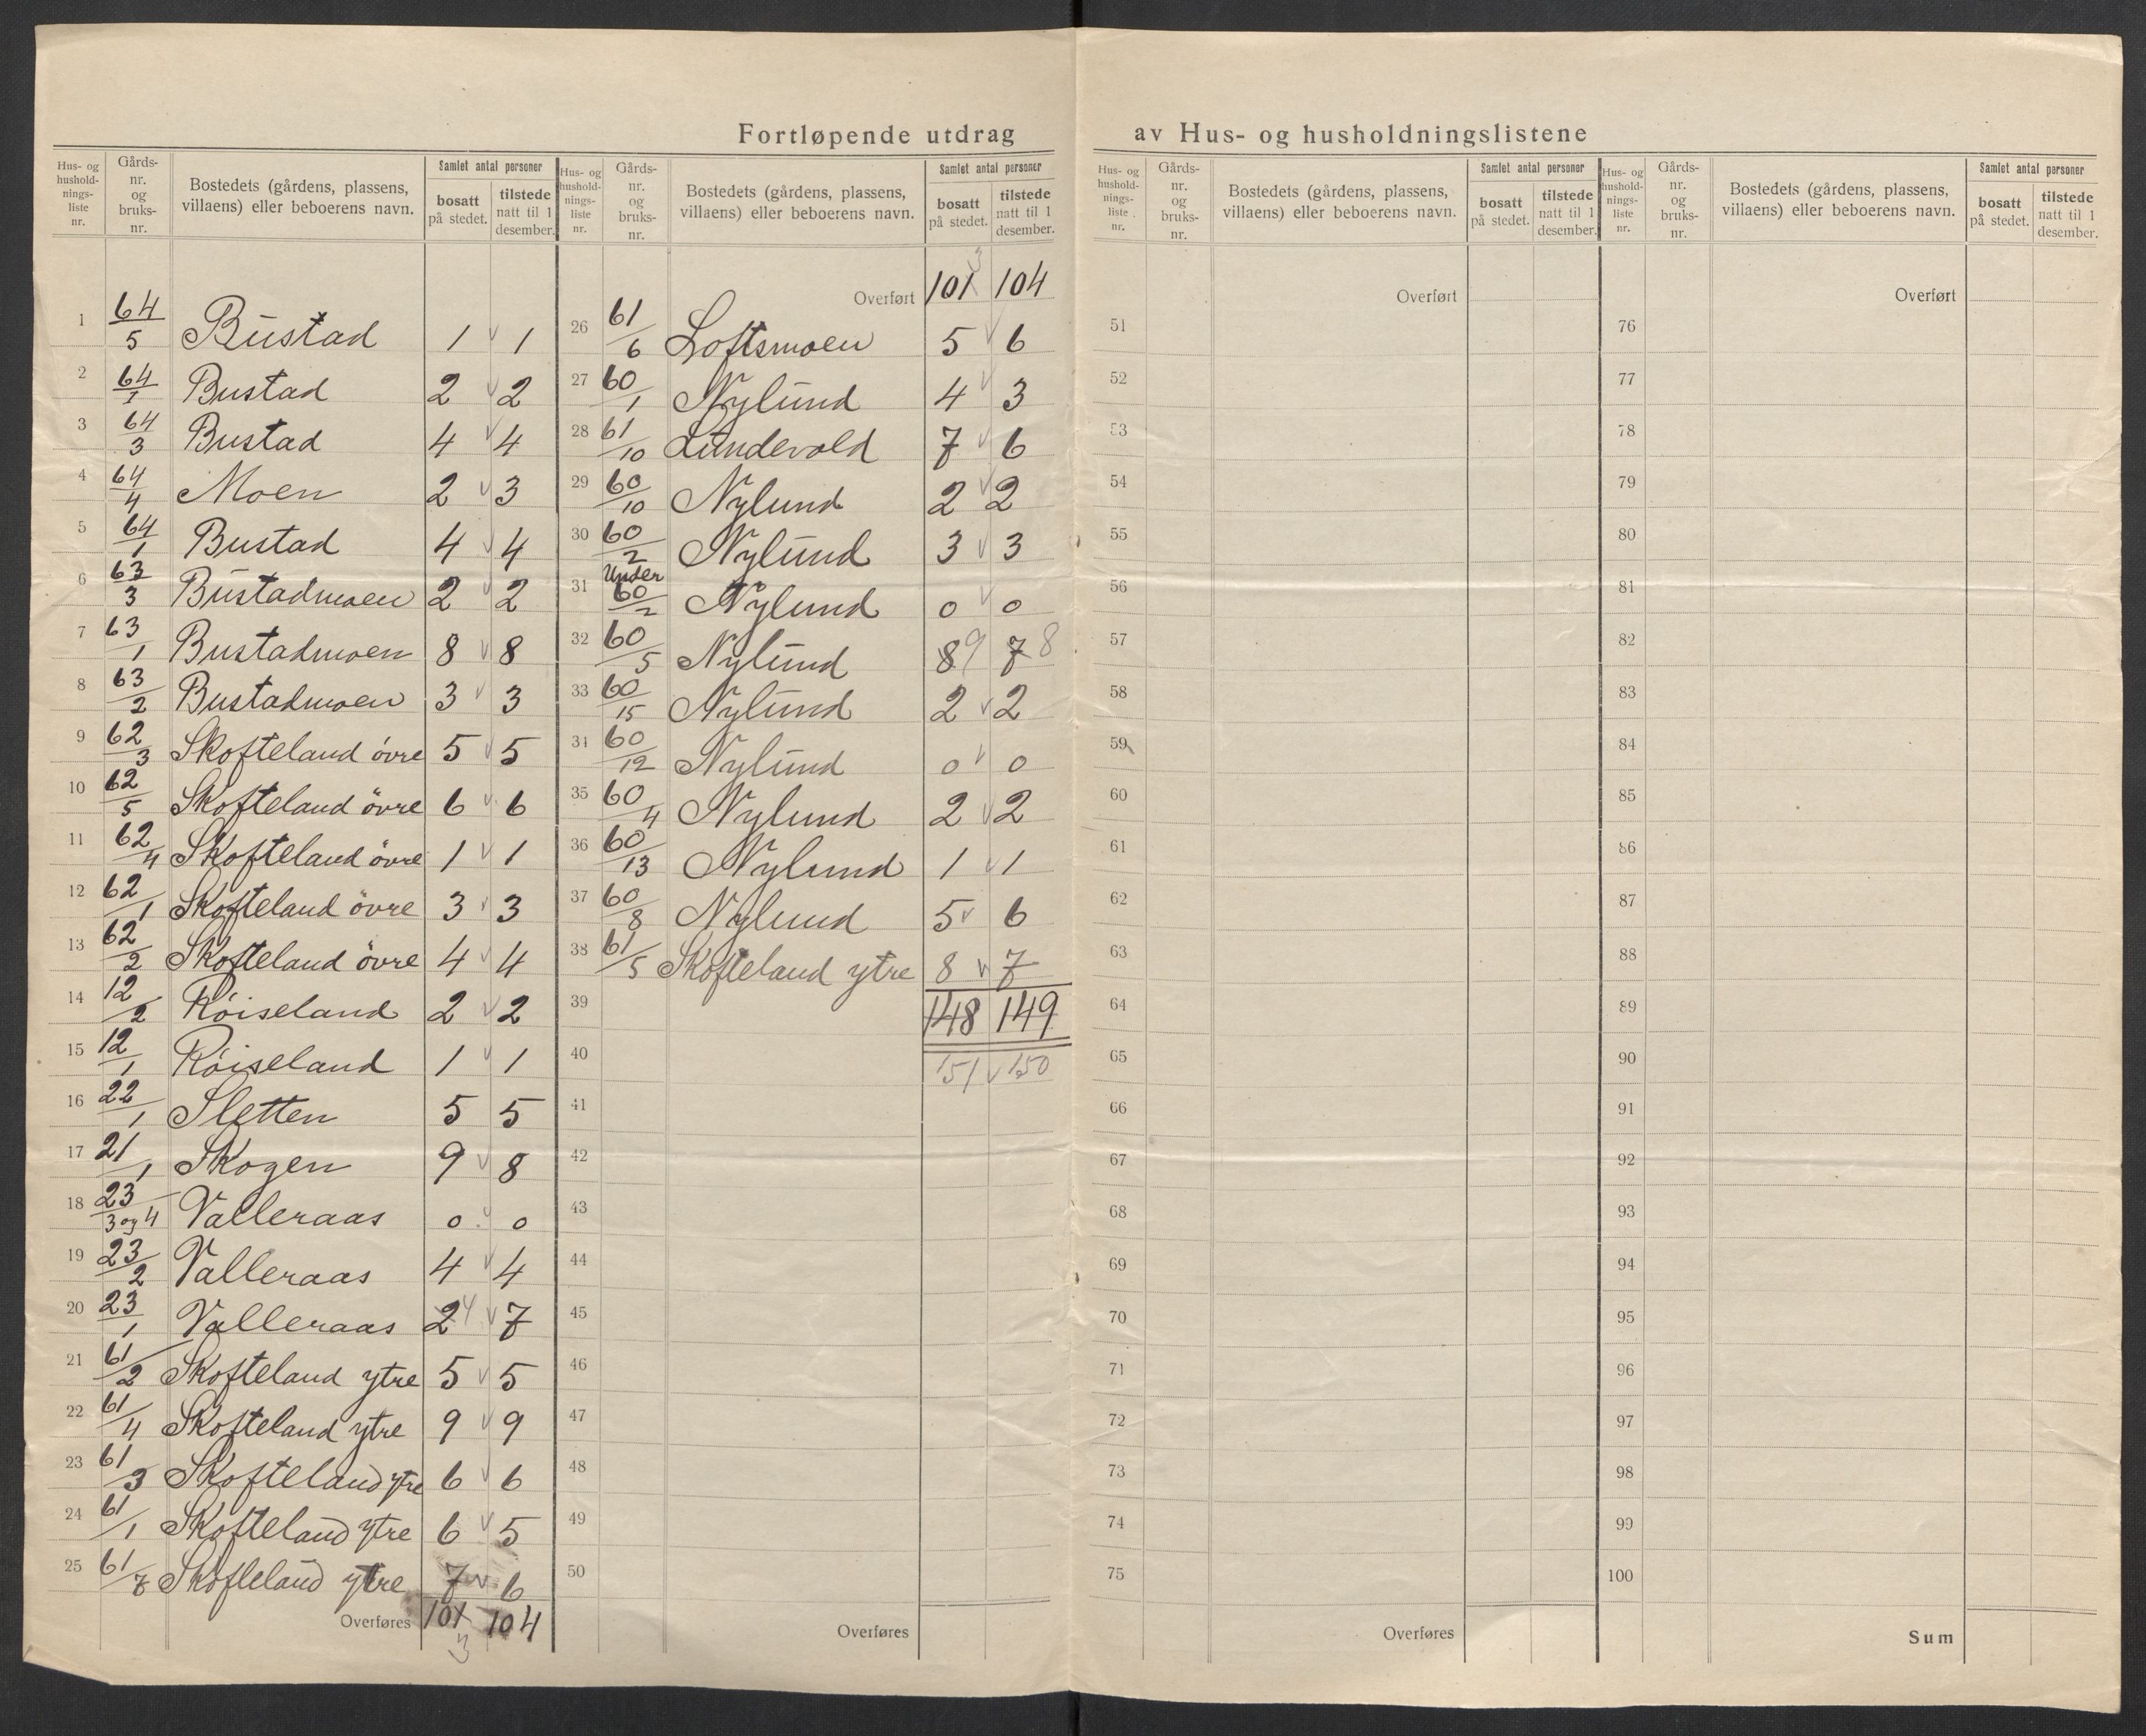 Fortløpende utdrag av Hus- og husholdningslistene
Hus- og husholdnings-liste nr. Gårds-nr. og bruks-nr. Bostedets (gårdens, plassens, villaens) eller beboerens navn. Samlet antal personer bosatt på stedet. tilstede natt til 1 desember.
1 64/5 Bustad 1 v 1
2 64/ Bustad 2 v 2
3 64/3 Bustad 4 v 4
4 64/4 Moen 2 v 3
5 64/1 Bustad 4 v 4
6 63/3 Bustadmoen 2 v 2
7 63/1 Bustadmoen 8 v 8
8 63/2 Bustadmoen 3 v 3
9 62/3 Skofteland övre 5 v 5
10 62/5 Skofteland övre 6 v 6
11 62/4 Skofteland övre 1 v 1
12 62/1 Skofteland övre 3 v 3
13 62/2 Skofteland övre 4 v 4
14 12/2 Röiseland 2 v 2
15 12/1 Röiseland 1 v 1
16 22/1 Sletten 5 5
17 21/1 Skogen 9 v 8
18 23/3 og 4 Valleraas 0 v 0
19 23/2 Valleraas 4 v 4
20 23/1 Valleraas 2 4 v 7
21 61/2 Skofteland ytre 5 v 5
22 61/4 Skofteland ytre 9 v 9
23 61/3 Skofteland ytre 6 v 6
24 61/1 Skofteland ytre 6 v 5
25 61/7 Skofteland ytre 7 v 6
Overføres 101 104
3
Hus- og husholdnings-liste nr. Gårds-nr. og bruks-nr. Bostedets (gårdens, plassens, villaens) eller beboerens navn. Samlet antal personer bosatt på stedet. tilstede natt til 1 desember.
3
Overført 101 104
26 61/6 Loftsmoen 5 v 6
27 60/1 Nylund 4 v 3
28 61/10 Lundevold 7 v 6
29 60/10 Nylund 2 v 2
30 60/2 Nylund 3 v 3
31 Under 60/2 Nylund 0 v 0
32 60/5 Nylund 8 9 7 8
33 60/15 Nylund 2 v 2
34 60/12 Nylund 0 v 0
35 60/4 Nylund 2 v 2
36 60/13 Nylund 1 v 1
37 60/8 Nylund 5 v 6
38 61/5 Skofteland ytre 8 v 7
39 148 149
40 151 v 150
41
42
43
44
45
46
47
48
49
50
Overføres
Hus- og husholdnings-liste nr. Gårds-nr. og bruks-nr. Bostedets (gårdens, plassens, villaens) eller beboerens navn. Samlet antal personer bosatt på stedet. tilstede natt til 1 desember.
Overført
51
52
53
54
55
56
57
58
59
60
61
62
63
64
65
66
67
68
69
70
71
72
73
74
75
Overføres
Hus- og husholdnings-liste nr. Gårds-nr. og bruks-nr. Bostedets (gårdens, plassens, villaens) eller beboerens navn. Samlet antal personer bosatt på stedet. tilstede natt til 1 desember.
Overført
76
77
78
79
80
81
82
83
84
85
86
87
88
89
90
91
92
93
94
95
96
97
98
99
100
Sum